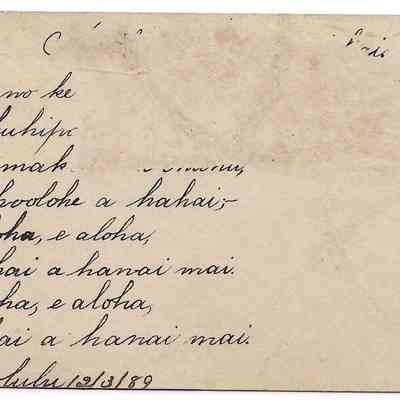 no ke
uhipe
mak
hoolohe a hahai;
loha, e aloha,
hai a hanai mai.
ha, e aloha,
ai a hanai mai.
olulu 12/3/89